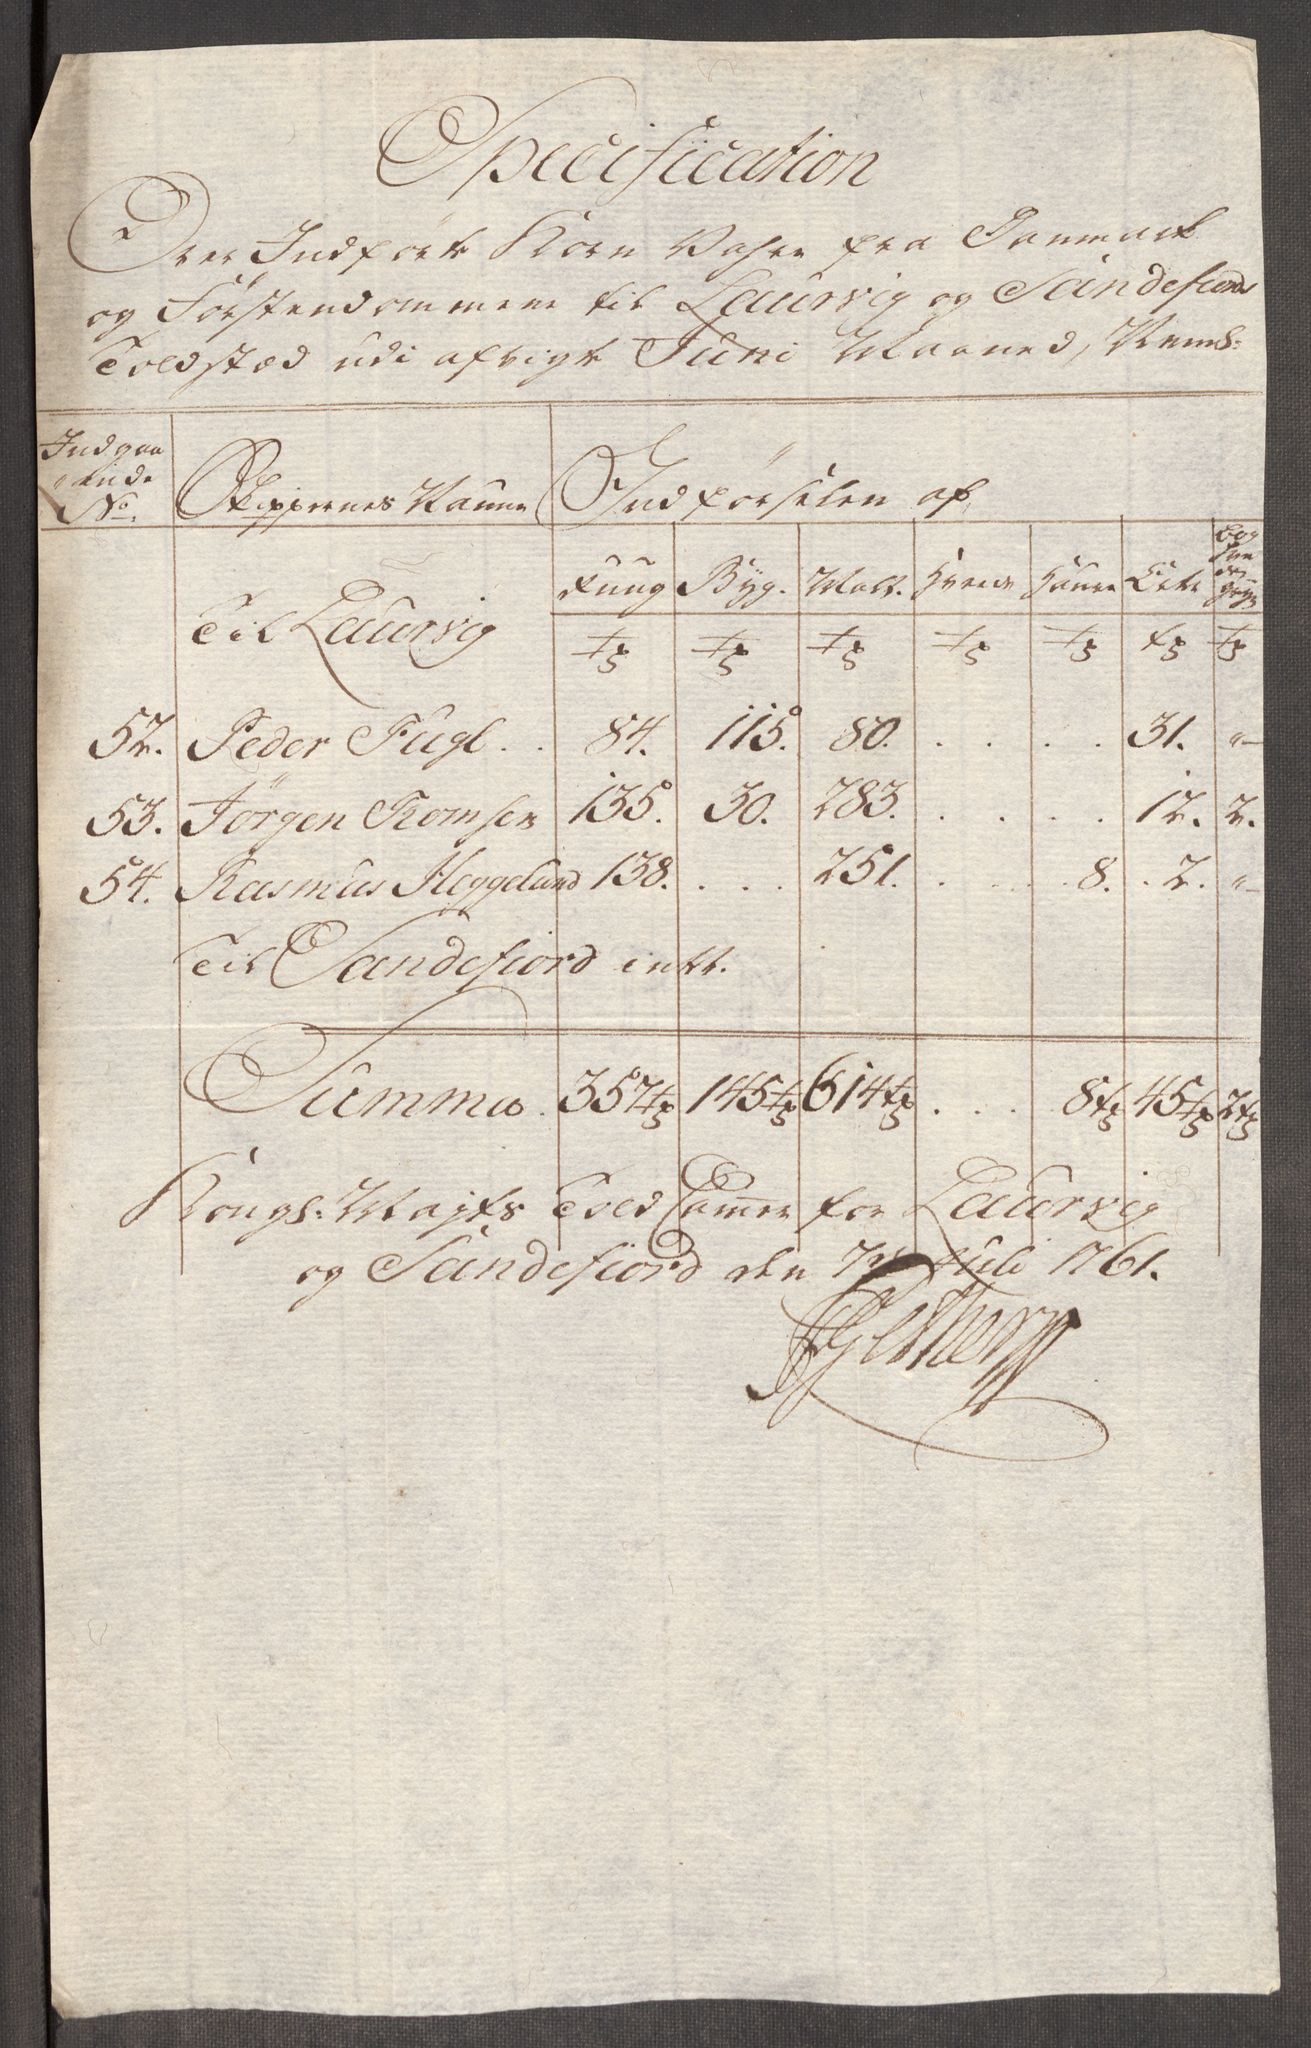 Specification
Over Indført Korn Vahre fra Danmark
og Førstendommene til Laurvig og Sandefiords
Toldsted udi afvigte Juni Maaned, Neml:
Indgaa
ende
No.
Skippernes Naune
Indførselen af
Til Laurvig
Ruug Byg. Malt. Hvede Haure Erter Bog hvede gryn
tr tr tr tr tr tr tr
52. Peder Fugl . . 84. 115. 80. . . . . 31. "
53. Jørgen Tromsen 135. 30. 283. . . . . 12. 2.
54. Rasmus Heggelund 138. . . . 251. . . . 8. . 2. "
Til Sandefiord intt.
Summa . 357 tr 145 tr 614 tr . . . 8 tr 45 tr 2 tr
Kongl: Mayts Told Cammer for Laurvig
og Sandefiord den 7de Juli 1761.